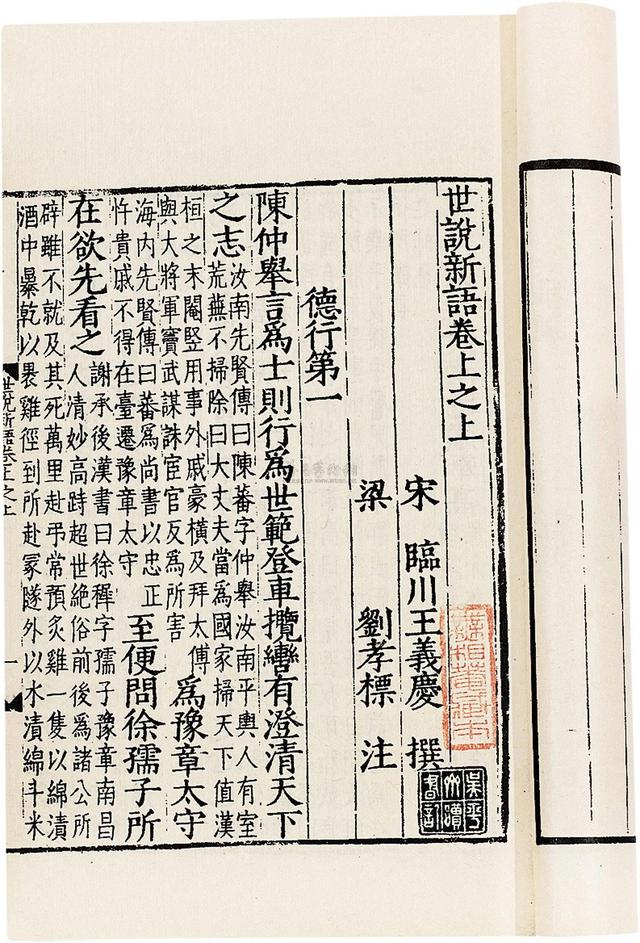 世說新語卷上之上
宋 臨川王義慶 撰
梁 劉孝標 注
德行第一
陳仲舉言爲士則行爲世範登車攬轡有澄清天下
之志
汝南先賢傳曰陳蕃字仲舉汝南平輿人有室
荒蕪不掃除曰大丈夫當爲國家掃天下值漢
桓之末閹豎用事外戚豪橫及拜太傅
與大將軍竇武謀誅宦官反爲所害
爲豫章太守
海内先賢傳曰蕃爲尚書以忠正
忤貴戚不得在臺遷豫章太守
至便問徐孺子所
在欲先看之
謝承後漢書曰徐穉字孺子豫章南昌
人清妙高跱超世絕俗前後爲諸公所
辟雖不就及其死萬里赴弔常預炙雞一隻以綿漬
酒中暴乾以裹雞徑到所赴冢隧外以水漬綿斗米
世說新語卷上之上
一